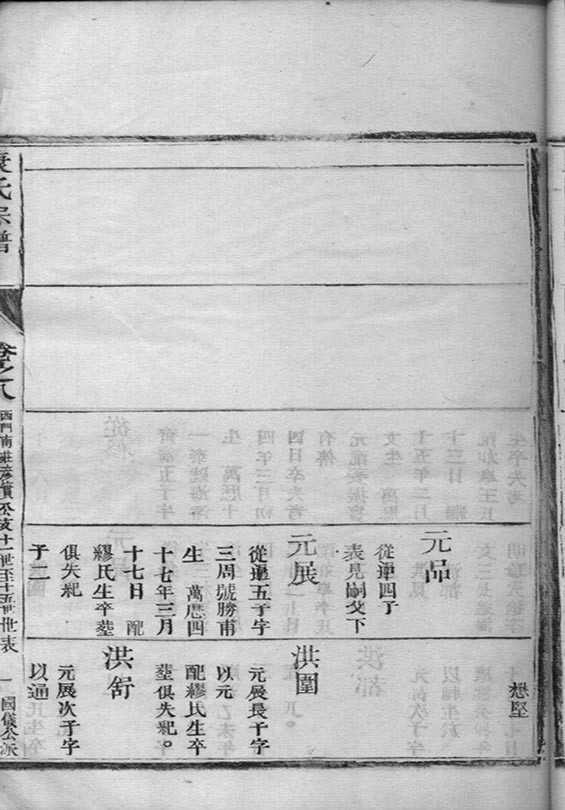 元品
從運四子
表見嗣父下
元展
從運五子字
三周號勝甫
生 萬厯四
十七年三月
十七日 配
繆氏生卒塟
俱失紀
子二
懋堅
洪圍
元展長子字
以元
配繆氏生卒
塟俱失紀。
洪舒
元展次子字
以通
氏宗譜
卷之八
西門南莊
公支十一世至十五世世表
一
國儀公派